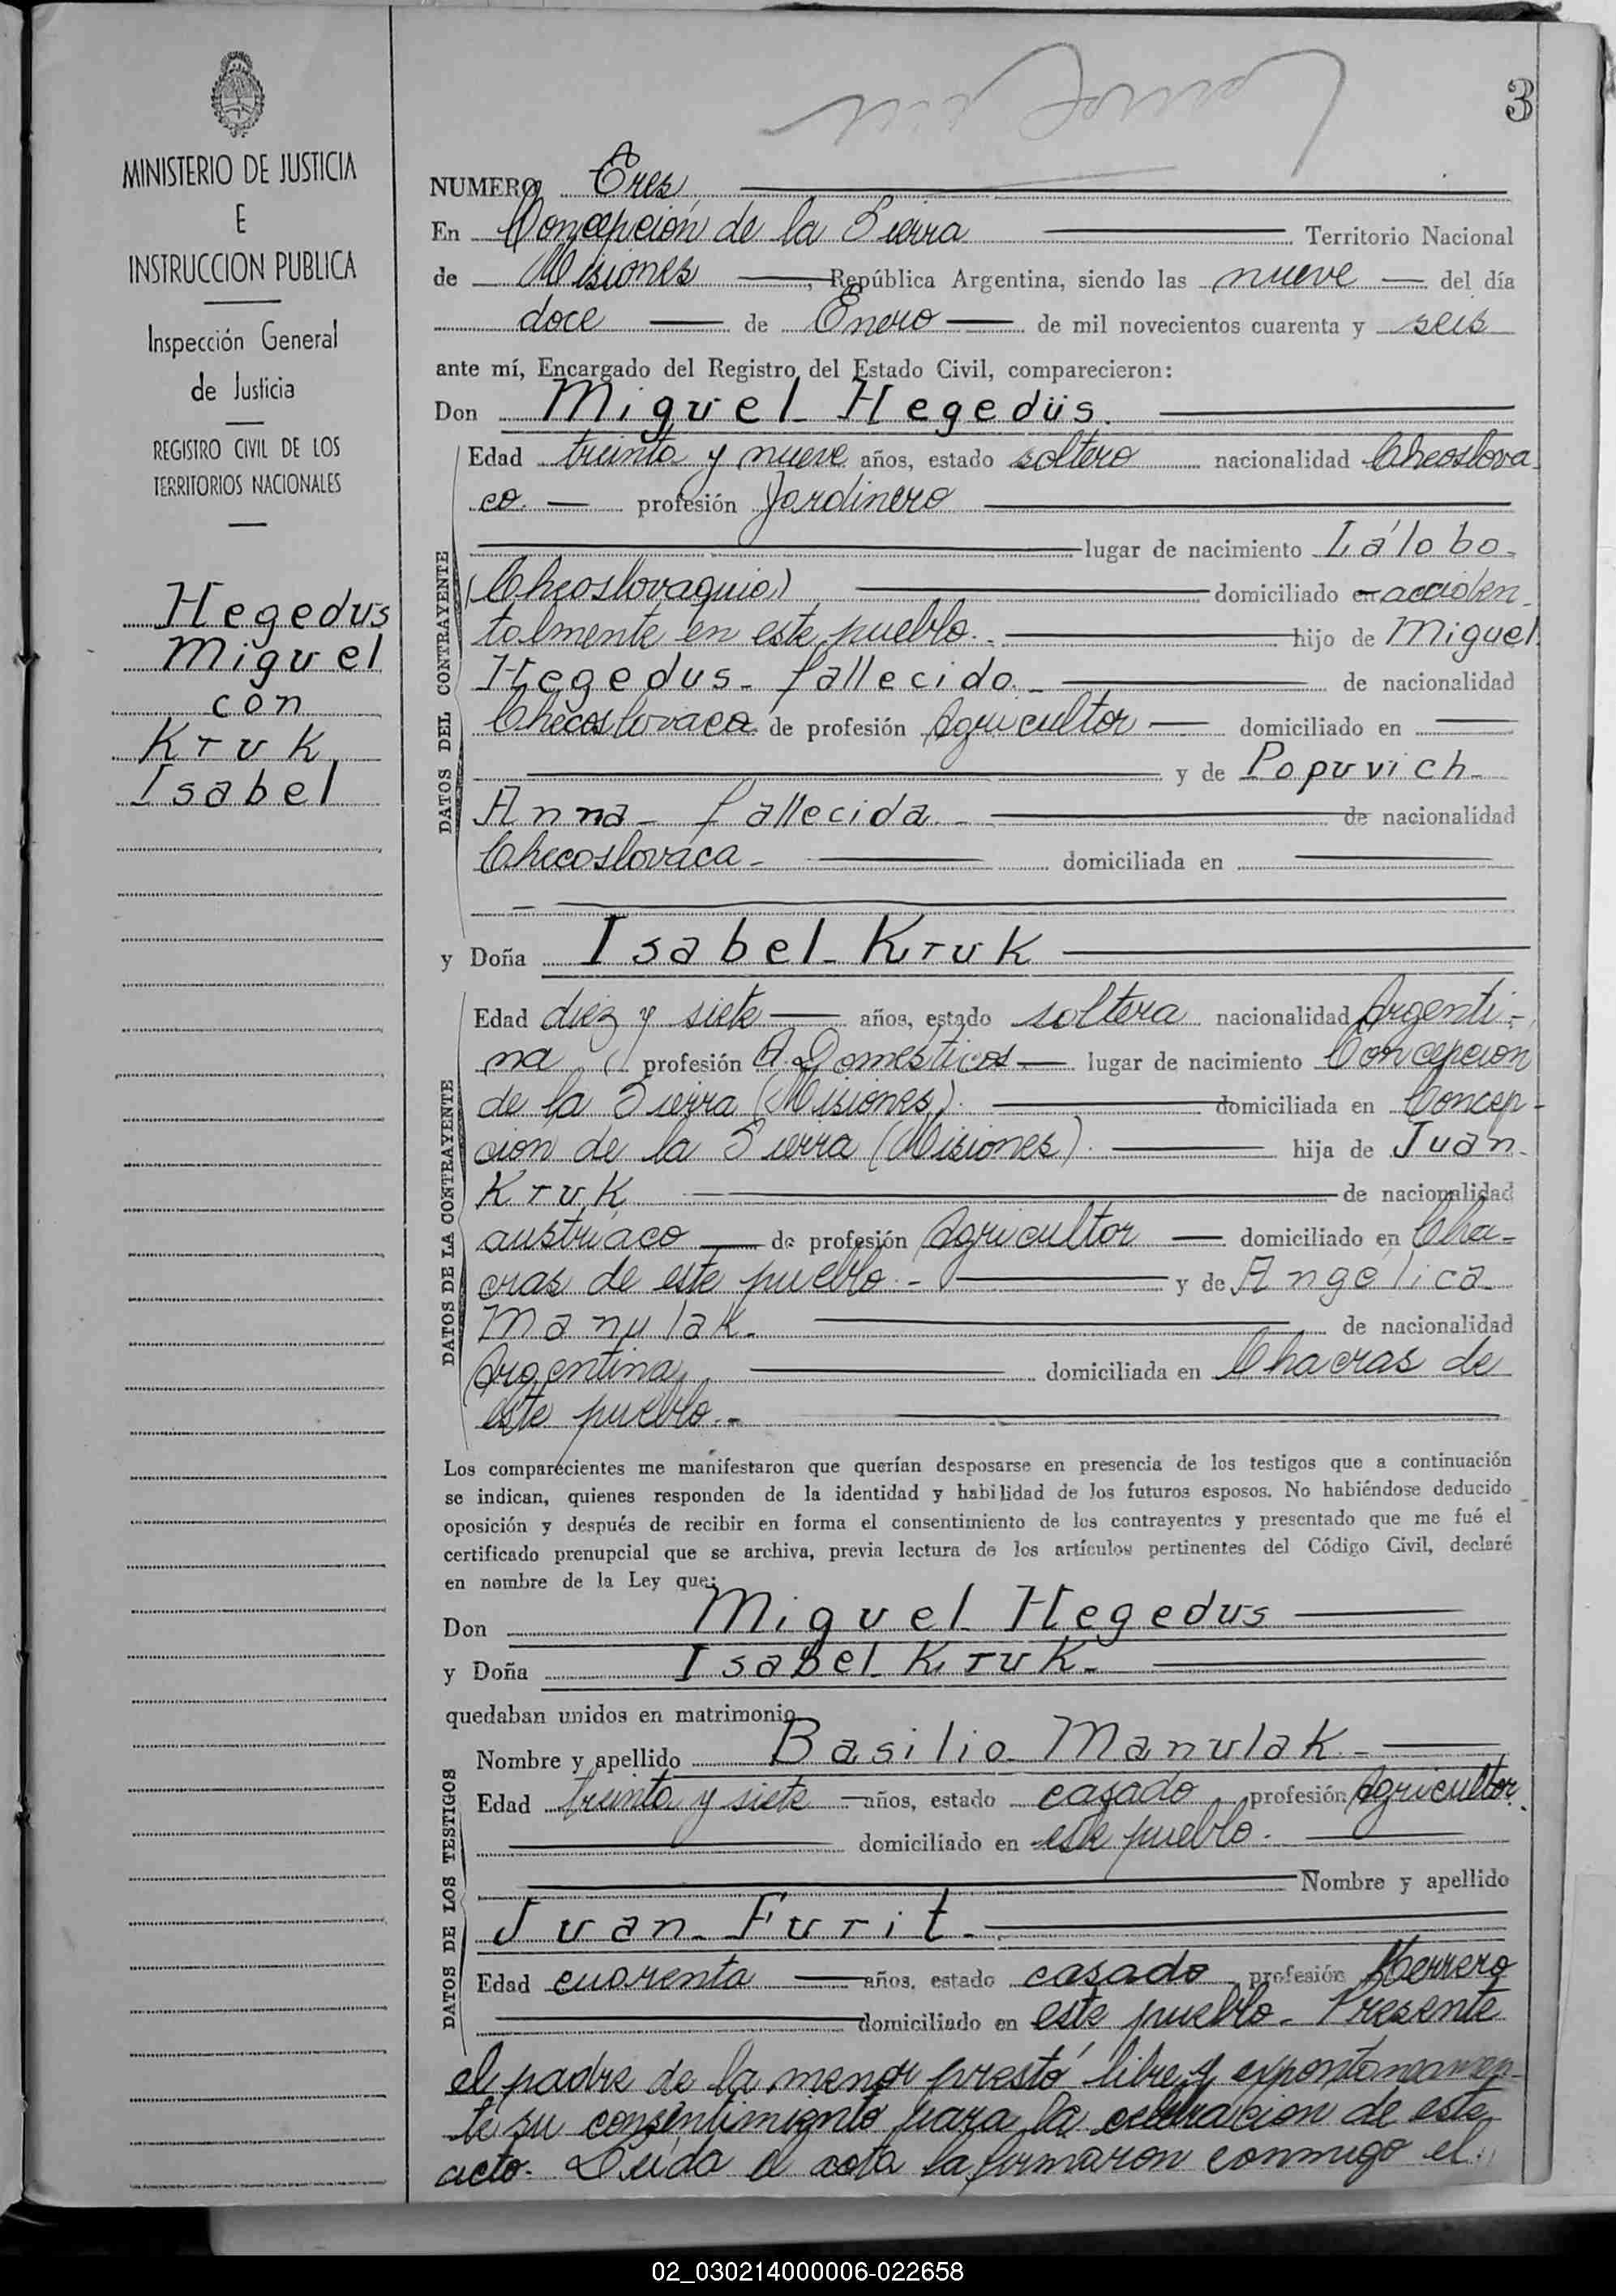 3
MINISTERIO DE JUSTICIA
E
INSTRUCCION PUBLICA
Inspección General
de Justicia
REGISTRO CIVIL DE LOS
TERRITORIOS NACIONALES
Hegedus
Miguel
con
Kruk
Isabel
NUMERO Tres
En Concepción de la Sierra Territorio Nacional
de Misiones, República Argentina, siendo las nueve del día
doce de Enero de mil novecientos cuarenta y seis
ante mí, Encargado del Registro del Estado Civil, comparecieron:
Don Miguel Hegedüs.
DATOS DEL CONTRAYENTE
Edad treinta y nueve años, estado soltero nacionalidad Checoslova
co. profesión Jardinero
lugar de nacimiento Lálobo-
(Checoslovaquia) domiciliado en acciden-
talmente en este pueblo.- hijo de Miguel
Hegedus- fallecido.- de nacionalidad
Checoslovaco de profesión Agricultor domiciliado en
y de Popuvich-
Anna- fallecida.- de nacionalidad
Checoslovaca- domiciliada en
y Doña Isabel- Kruk
DATOS DE LA CONTRAYENTE
Edad diez y siete años, estado soltera nacionalidad Argenti-
na profesión Q. Domésticos lugar de nacimiento Concepcion
de la Sierra (Misiones). domiciliada en Concep-
cion de la Sierra (Misiones). hija de Juan-
Kruk de nacionalidad
austríaco de profesión Agricultor domiciliado en Cha-
cras de este pueblo.- y de Angélica
Manulak- de nacionalidad
Argentina domiciliada en Chacras de
este pueblo.-
Los comparecientes me manifestaron que querían desposarse en presencia de los testigos que a continuación
se indican, quienes responden de la identidad y habilidad de los futuros esposos. No habiéndose deducido
oposición y después de recibir en forma el consentimiento de los contrayentes y presentado que me fué el
certificado prenupcial que se archiva, previa lectura de los artículos pertinentes del Código Civil, declaré
en nombre de la Ley que:
Don Miguel Hegedus
y Doña Isabel Kruk-
quedaban unidos en matrimonio
DATOS DE LOS TESTIGOS
Nombre y apellido Basilio Manulak-
Edad treinta y siete años, estado casado profesión Agricultor.
domiciliado en este pueblo.
Nombre y apellido
Juan- Furit-
Edad cuarenta años, estado casado profesión Herrero
domiciliado en este pueblo- Presente
el padre de la menor prestó libre y expontaneamen-
te su consentimiento para la celebracion de este
acto- Leída el acta la firmaron conmigo el
02_030214000006-022658